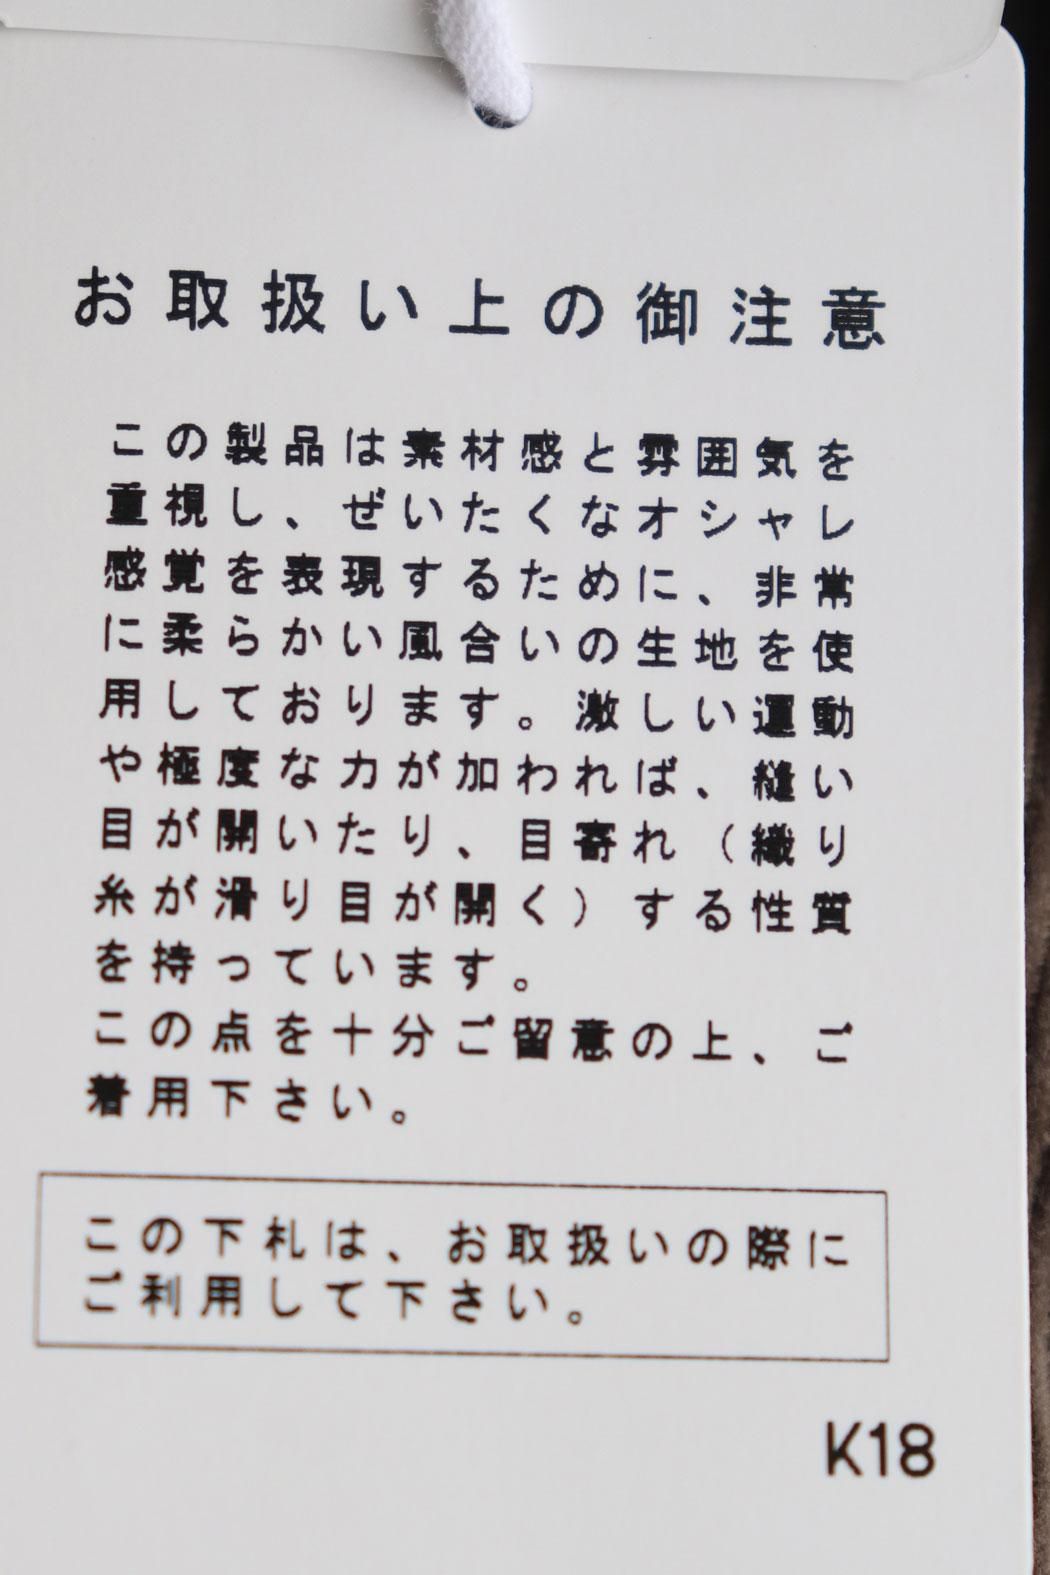 お取扱い上の御注意
この製品は素材感と雰囲気を
重視し、ぜいたくなオシャレ
感覚を表現するために、非常
に柔らかい風合いの生地を使
用しております。激しい運動
や極度な力が加われば、縫い
目が開いたり、目寄れ（織り
糸が滑り目が開く）する性質
を持っています。
この点を十分ご留意の上、ご
着用下さい。
この下札は、お取扱いの際に
ご利用して下さい。
K18